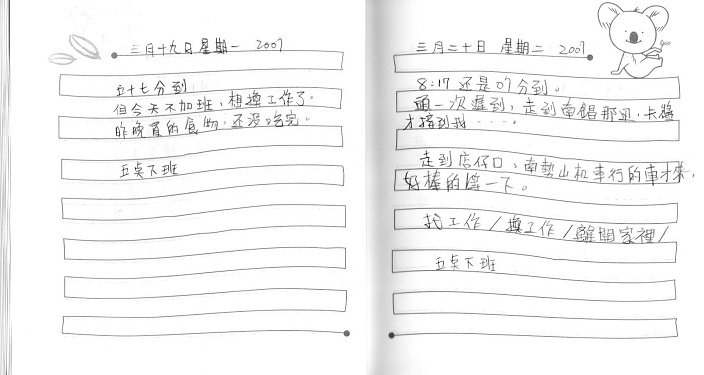 三月十九日 星期一 2007
五十七分到
但今天不加班，相換工作了。
昨晚買的食物，还没吃完。
五点下班
三月二十日 星期二 2007
8:17 还是07分到。
頭一次遲到，走到南
才接到我……。
走到店仔口，南勢山和車行的車才來，
好棒的一下。
找工作/換工作/離開家裡/
五点下班